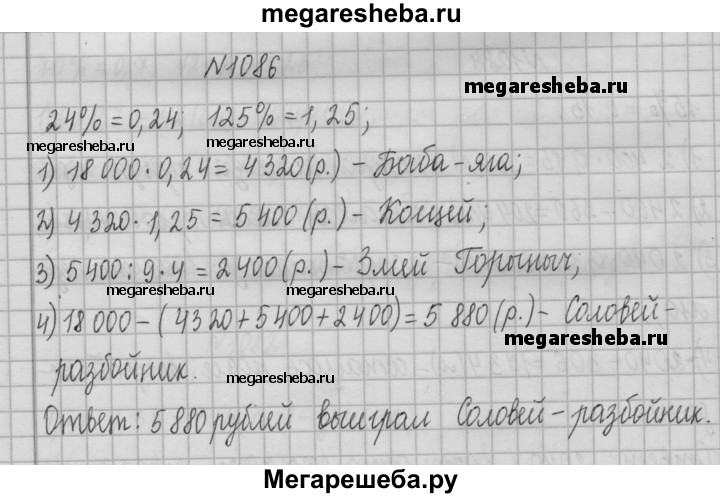 megaresheba.ru
N1086
megaresheba.ru
24%=0,24; 125%=1,25;
megaresheba.ru megaresheba.ru
1) 18 000·0,24= 4320(р.) - Баба-яга;
2) 4320·1,25=5400(р.)- Кощей;
3) 5400:9·4=2400(р.)- Змей Горыныч,
megaresheba.ru megaresheba.ru
4) 18 000-(4320+5400+2400)=5 880(р.)- Соловей-
megaresheba.ru
разбойник.
megaresheba.ru
Ответ: 5 880 рублей выиграл Соловей-разбойник.
Мегарешеба.ру